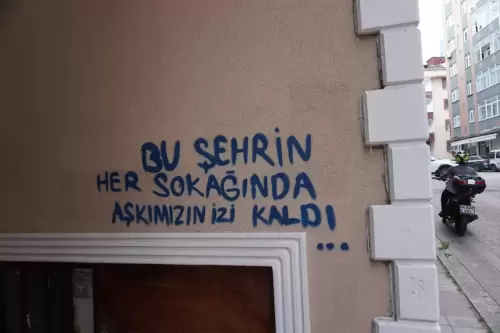 BU ŞEHRİN
HER SOKAĞINDA
AŞKIMIZIN İZİ KALDI
...